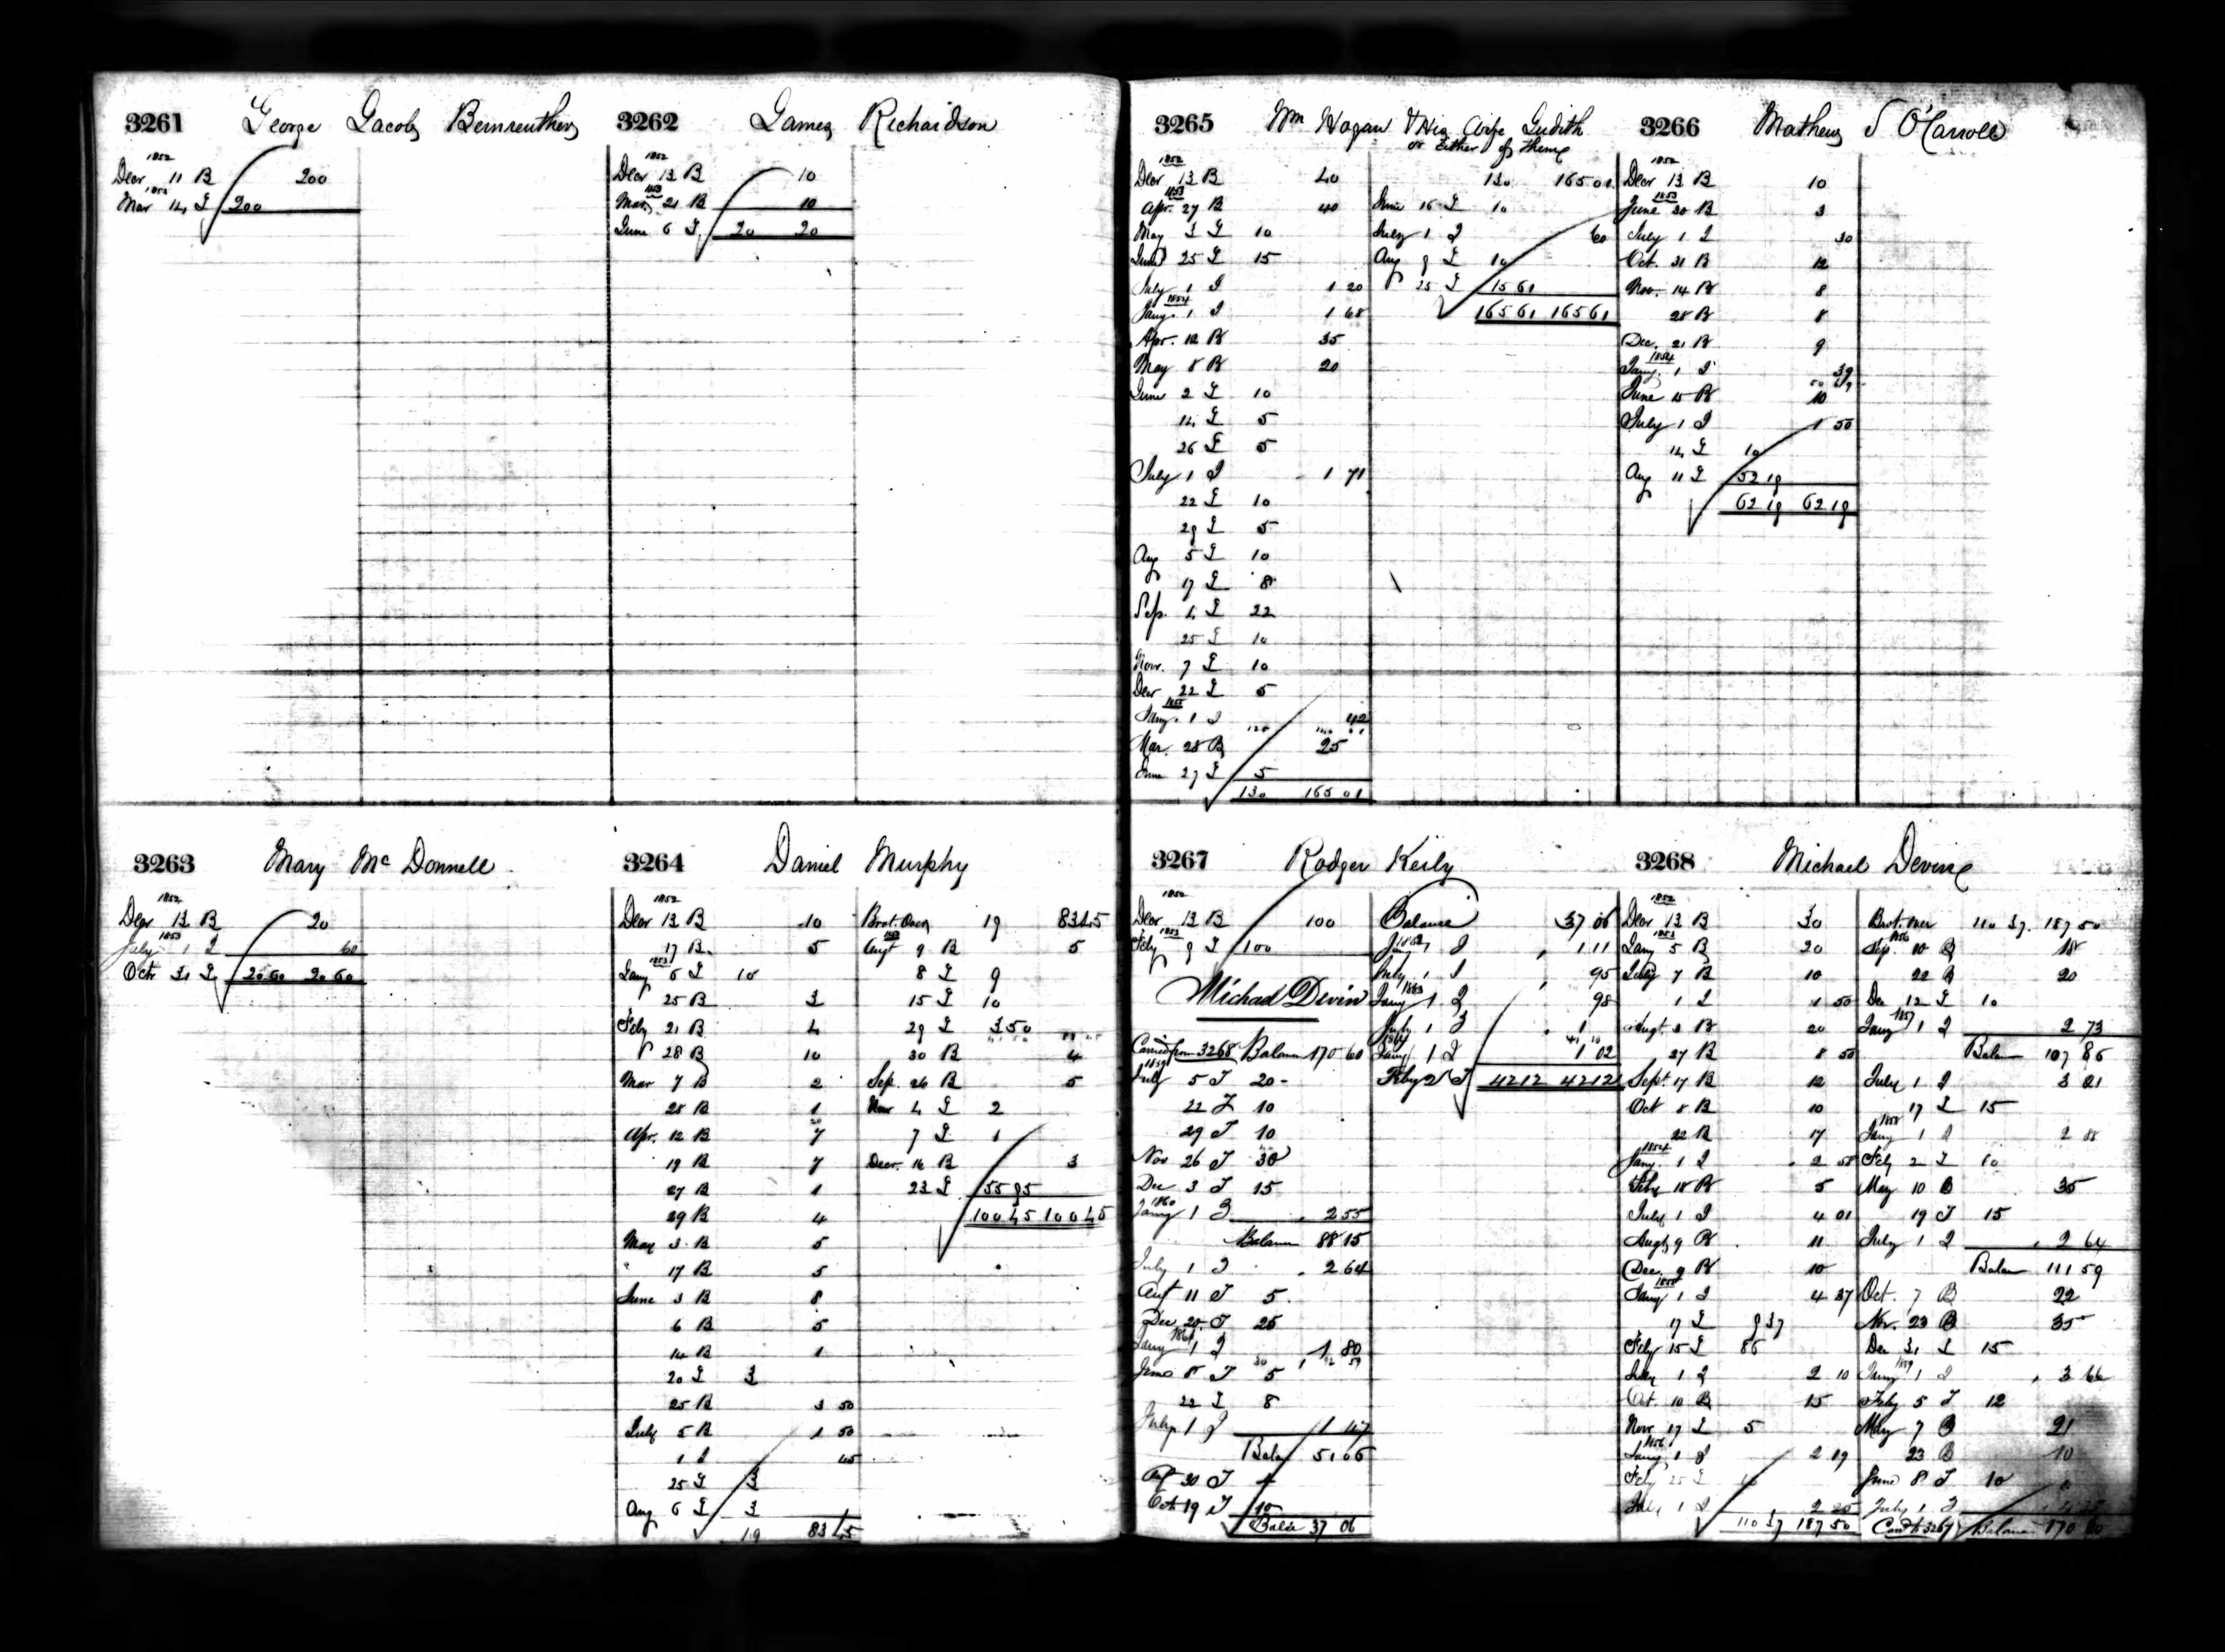 3261 George Jacob Bernreuther
1852
Decr 11 B 200
1853
Mar 14 T 200
3262 James Richardson
1852
Decr 13 B 10
1853
Mar 21 B 10
June 6 T 20 20
3263 Mary Mc Donnell
1852
Decr 13 B 20
1853
July 1 I 60
Octr 31 T 20 60 20 60
3264 Daniel Murphy
1852
Decr 13 B 10
17 B 5
1853
Jany 6 T 10
25 B 3
Feby 21 B 4
28 B 10
Mar 7 B 2
28 B 1
Apr. 12 B 7
19 B 7
27 B 1
29 B 4
May 3 B 5
17 B 5
June 3 B 8
6 B 5
14 B 1
20 T 3
25 B 3 50
July 5 B 1 50
1 I 45
25 T 3
Aug 6 T 3
19 83 45
Brot. Over 19 83 45
1853
Augt 9 B 5
8 T 9
15 T 10
29 T 3 50
30 B 4
Sep. 26 B 5
Nov 4 T 2
7 T 1
Decr. 16 B 3
23 T 55 95
100 45 100 45
3265 Wm Hogan & His Wife Judith
or Either of Them
1852
Decr 13 B 40
1853
Apr. 27 B 40
May 3 T 10
June 25 T 15
July 1 I 1 20
1854
Jany. 1 I 1 68
Apr. 12 B 35
May 8 B 20
June 2 T 10
14 T 5
26 T 5
July 1 I 1 71
22 T 10
29 T 5
Aug 5 T 10
17 T 8
Sep. 4 T 22
25 T 10
Nov. 7 T 10
Decr 22 T 5
1855
Jany. 1 I 42
Mar. 28 B 25
June 27 T 5
130 165 01
130 165 01
June 16 T 10
July 1 I 60
Aug 9 T 10
25 T 15 61
165 61 165 61
3266 Mathew S O'Carroll
1852
Decr 13 B 10
1853
June 30 B 3
July 1 I 30
Oct. 31 B 12
Nov. 14 B 8
28 B 8
Dec. 21 B 9
1854
Jany. 1 I 39
June 15 B 10
July 1 I 1 50
14 T 10
Aug 11 T 52 19
62 19 62 19
3267 Rodger Keily
1852
Decr 13 B 100
1853
Feby 9 T 100
Michael Devin
Carried from 3268 Balance 170 60
1859
July 5 T 20
22 T 10
29 T 10
Nov 26 T 30
Dec 3 T 15
1860
Jany 1 I 2 55
Balance 88 15
July 1 I 2 64
Aug 11 T 5
Dec 20 T 25
1861
Jany 1 I 1 80
June 8 T 5
22 T 8
July 1 I 1 47
Balan 51 06
Aug 30 T 4
Octr 19 T 10
Balce 37 06
Balance 37 06
1862
Jany 1 I 1 11
July 1 I 95
1863
Jany 1 I 98
July 1 I 1
1864
Jany 1 I 1 02
Feby 2 T 42 12 42 12
3268 Michael Devine
1852
Decr 13 B 30
1853
Jany 5 B 20
July 7 B 10
1 I 1 50
Augt. 3 B 20
27 B 8 50
Sept 17 B 12
Oct 8 B 10
22 B 17
1854
Jany. 1 I 2 58
Feby 18 B 5
July 1 I 4 01
Augt 9 B 11
Dec. 9 B 10
1855
Jany 1 I 4 37
17 T 9 37
Feby 15 T 86
July 1 I 2 10
Oct. 10 B 15
Nov 17 T 5
1856
Jany 1 I 2 19
Feby 25 T 10
July 1 I 2 25
110 37 187 50
Brot. over 110 37 187 50
1856
Sep. 10 B 18
22 B 20
Dec 12 T 10
1857
Jany 1 I 2 73
Balan 107 86
July 1 I 3 21
17 T 15
1858
Jany 1 I 2 88
Feby 2 T 10
May 10 B 35
19 T 15
July 1 I 2 64
Balan 111 59
Oct. 7 B 22
Nov. 23 B 35
Dec 31 T 15
1859
Jany 1 I 3 66
Feby 5 T 12
May 7 B 21
23 B 10
June 8 T 10
July 1 I
Card to 3267 Balance 170 60